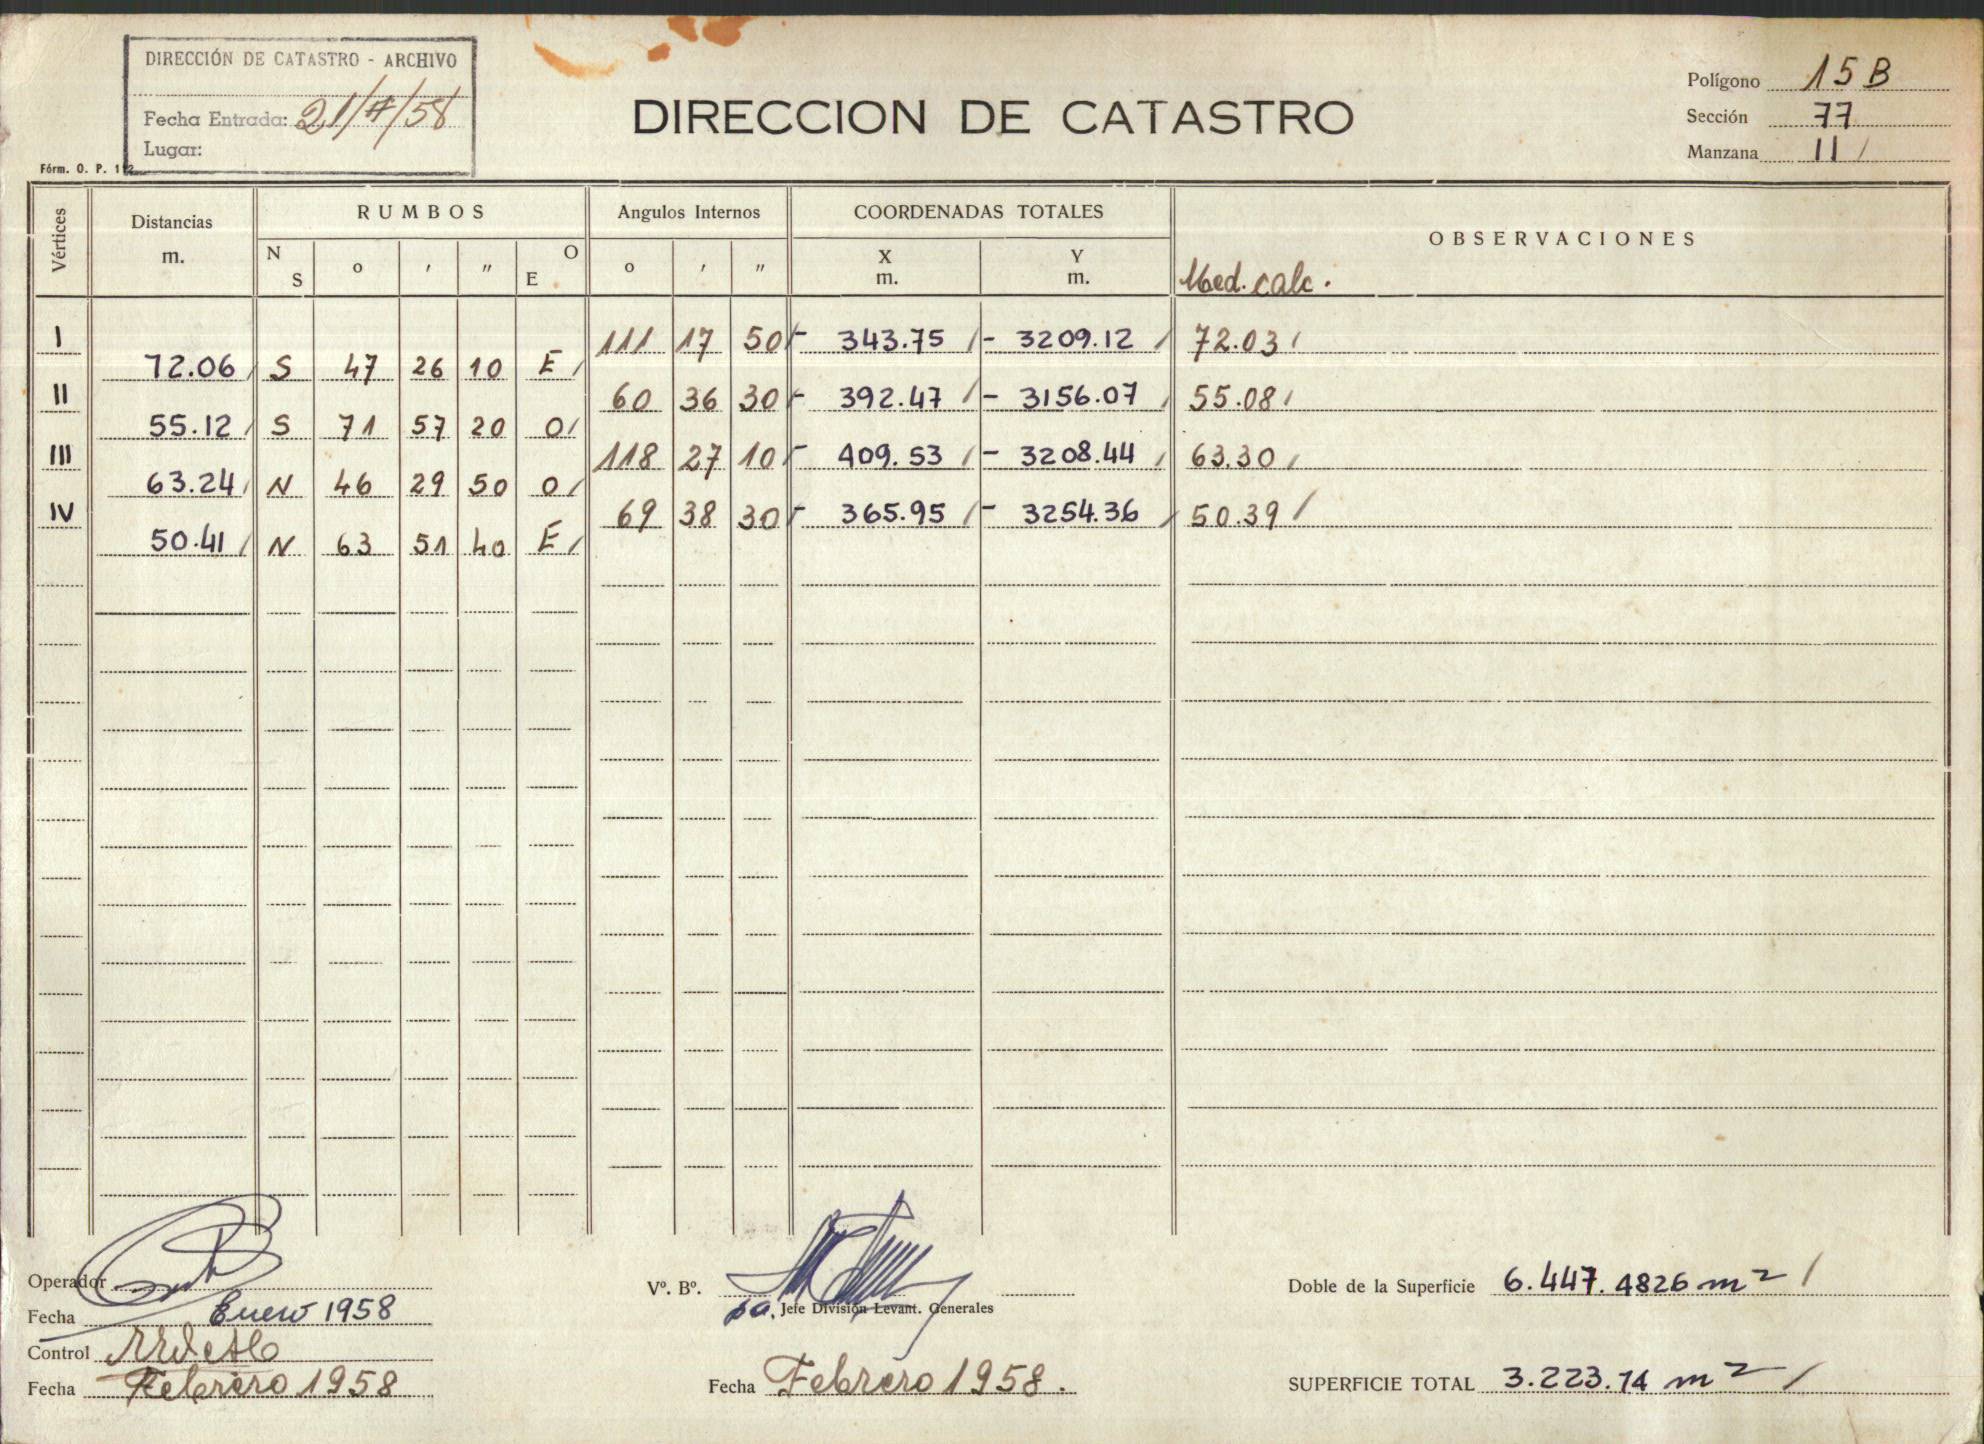 DIRECCIÓN DE CATASTRO - ARCHIVO
Fecha Entrada: 21/7/58
Lugar:
Fórm. O. P. 112
DIRECCION DE CATASTRO
Polígono 15 B
Sección 77
Manzana 11 /
Vértices
Distancias m.
RUMBOS
Angulos Internos
COORDENADAS TOTALES
OBSERVACIONES
N S o ' " O E o ' " X m. Y m. Med. calc.
I 111 17 50 - 343.75 / - 3209.12 / 72.03 /
72.06 / S 47 26 10 E /
II 60 36 30 - 392.47 / - 3156.07 / 55.08 /
55.12 / S 71 57 20 O /
III 118 27 10 - 409.53 / - 3208.44 / 63.30 /
63.24 / N 46 29 50 O /
IV 69 38 30 - 365.95 / - 3254.36 / 50.39 /
50.41 / N 63 51 40 E /
Operador
Fecha Enero 1958
Control
Fecha Febrero 1958
Vº. Bº.
pa. Jefe División Levant. Generales
Fecha Febrero 1958.
Doble de la Superficie 6.447.4826 m² /
SUPERFICIE TOTAL 3.223.74 m² /